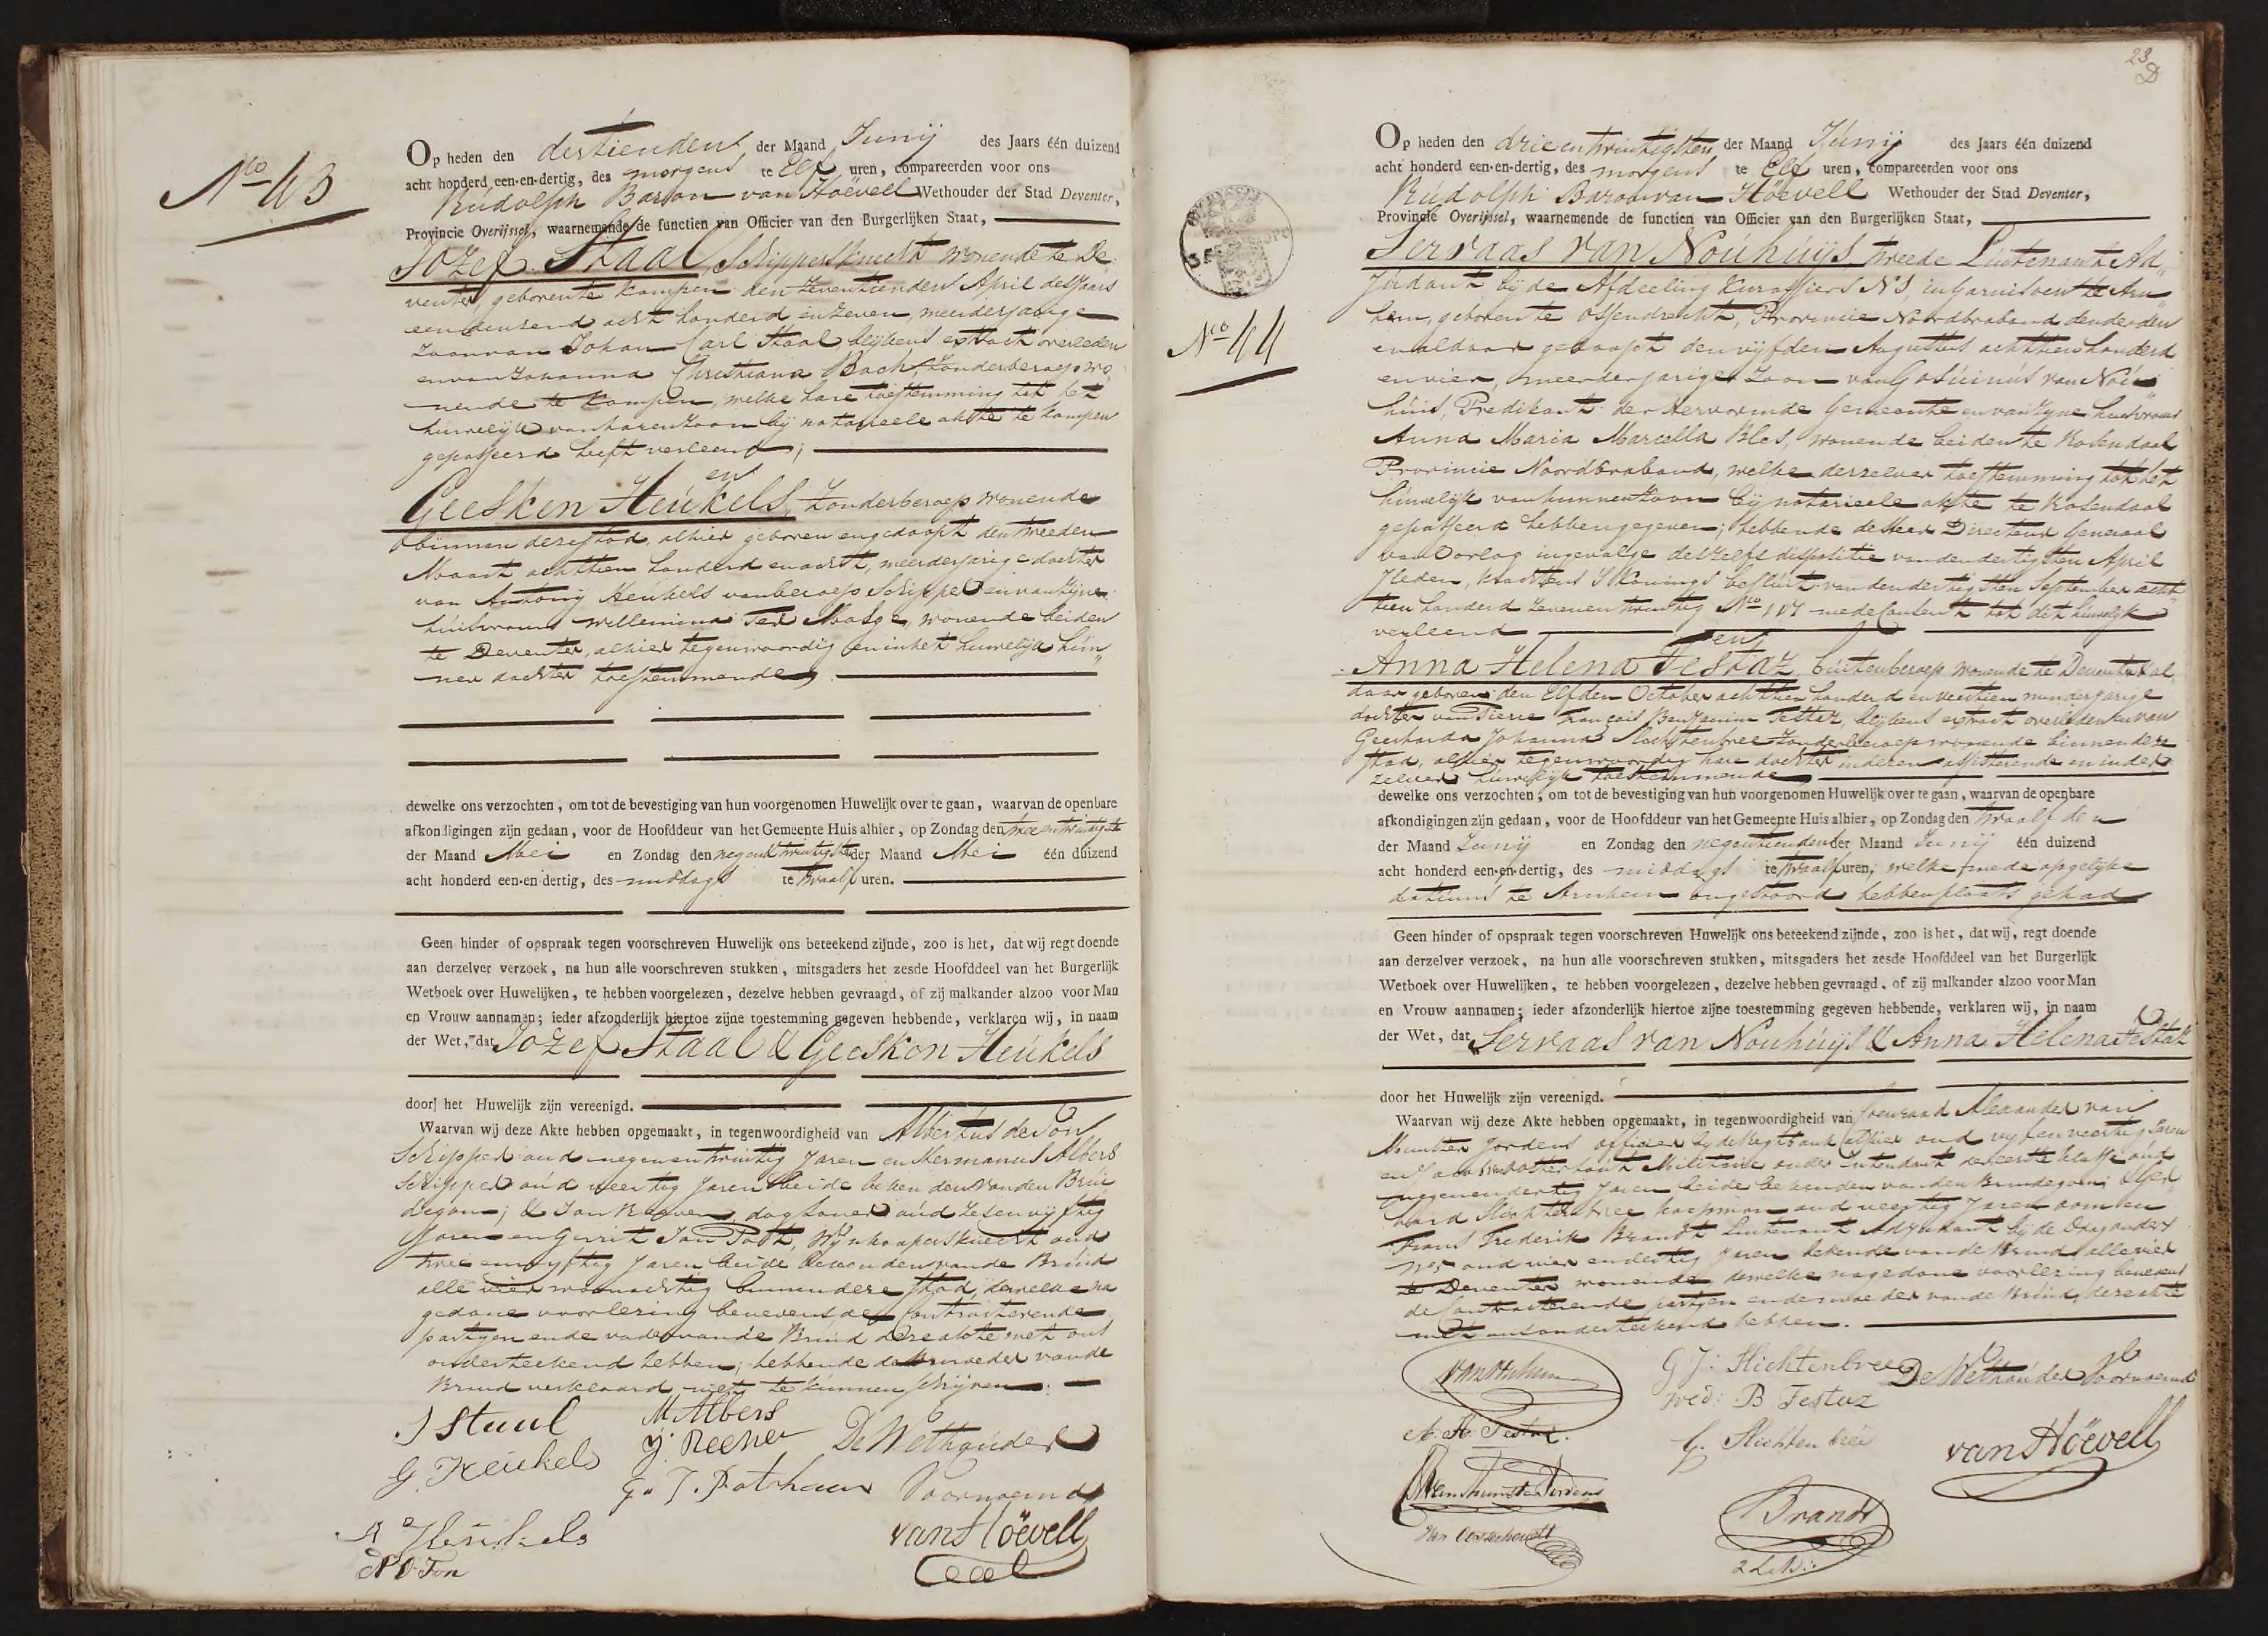 No 43
Op heden den destienden der Maand Junij des Jaars één duizend
acht honderd een-en-dertig, des morgens te Elf uren, compareerden voor ons
Rudolph Baron van Höevell Wethouder der Stad Deventer,
Provincie Overijssel, waarnemende de functien van Officier van den Burgerlijken Staat,
Jozef Staal, Schippersknecht wonende te De
venter, geboren te Kampen den Zeventienden April des Jaars
een duizend acht honderd en Zeven, meerderjarige
Zoon van Johan Carl Staal blijkens extract overleden
en van Johanna Christiana Bach, Zonder beroep wo
nende te Kampen, welke hare toestemming tot het
huwelijk van haren Zoon bij notarieele akte te Kampen
gepasseerd heeft verleend;
en
Geesken Heukels, Zonder beroep wonende
binnen deze stad, alhier geboren en gedoopt den tweeden
Maart achttien honderd en acht, meerderjarige dochter
van Antonij Heukels van beroep Schipper en van Zijne
huisvrouw Willemina Ter Maage, wonende beiden
te Deventer, alhier tegenwoordig en in het huwelijk hun„
ner dochter toestemmende
dewelke ons verzochten, om tot de bevestiging van hun voorgenomen Huwelijk over te gaan, waarvan de openbare
afkondigingen zijn gedaan, voor de Hoofddeur van het Gemeente Huis alhier, op Zondag den twee en twintigste
der Maand Mei en Zondag den negen en twintigsten der Maand Mei één duizend
acht honderd een-en-dertig, des middags te twaalf uren.
Geen hinder of opspraak tegen voorschreven Huwelijk ons beteekend zijnde, zoo is het, dat wij regt doende
aan derzelver verzoek, na hun alle voorschreven stukken, mitsgaders het zesde Hoofddeel van het Burgerlijk
Wetboek over Huwelijken, te hebben voorgelezen, dezelve hebben gevraagd, of zij malkander alzoo voor Man
en Vrouw aannamen; ieder afzonderlijk hiertoe zijne toestemming gegeven hebbende, verklaren wij, in naam
der Wet, dat Jozef Staal & Geesken Heukels
door het Huwelijk zijn vereenigd.
Waarvan wij deze Akte hebben opgemaakt, in tegenwoordigheid van Albertus de Ton
Schipper oud negen en twintig Jaren en Hermanus Albers
Schipper oud veertig Jaren beide bekenden van den Brui
degom; & Jan dagloner oud Zes en vijftig
Jaren en Gerrit Jan Wijnkoopersknecht oud
twee en vijftig Jaren beide bekenden van de Bruid
alle vier woonachtig binnen deze stad, dewelke na
gedane voorlezing benevens de Contracterende
partijen en de vader van de Bruid deze akte met ons
onderteekend hebben; hebbende de moeder van de
Bruid verklaard niet te kunnen schrijven.
J Staal
M Albers
De Wethouder
G. Heukels
G. J.
Voornoemd
A Heukels
van Höevell
A D Ton
23
No 44
Op heden den drie en twintigsten der Maand Junij des Jaars één duizend
acht honderd een-en-dertig, des morgens te Elf uren, compareerden voor ons
Rudolph Baron van Höevell Wethouder der Stad Deventer,
Provincie Overijssel, waarnemende de functien van Officier van den Burgerlijken Staat,
Servaas van Nouhuijs tweede Luitenant Ad„
judant bij de Afdeeling Kurassiers No 3, in Garnisoen te Arn„
hem, geboren te Ossendrecht, Provincie Noordbraband den derden
en aldaar gedoopt den vijfden Augustus achttien honderd
en vier, meerderjarige Zoon van Gosuinus van Nou„
huis, Predikant der Hervormde Gemeente en van Zijne huisvrouw
Anna Maria Marcella Bles, wonende beiden te Rosendaal
Provincie Noordbraband, welke derzelver toestemming tot het
huwelijk van hunnen Zoon bij notarieele akte te Rosendaal
gepasseerd hebben gegeven; hebbende de Heer Directeur Generaal
van Oorlog ingevolge deszelfs dispositie van den dertigsten April
Jleden, krachtens S Konings besluit van den dertigsten September acht
tien honderd Zeven en twintig No 107 mede consent tot dit huwelijk
verleend
en
Anna Helena Testaz, buiten beroep wonende te Deventer al
daar geboren den Elfden October achttien honderd en veertien minderjarige
dochter van Pierre François Benjamin Testaz, blijkens extract overleden en van
Geertharda Johanna Slichtenbree Zonder beroep wonende binnen deze
stad, alhier tegenwoordig hare dochter in dezen assisterende en in der
zelver huwelijk toestemmende
dewelke ons verzochten, om tot de bevestiging van hun voorgenomen Huwelijk over te gaan, waarvan de openbare
afkondigingen zijn gedaan, voor de Hoofddeur van het Gemeente Huis alhier, op Zondag den twaalfden
der Maand Junij en Zondag den negentienden der Maand Junij één duizend
acht honderd een-en-dertig, des middags te twaalf uren, welke mede op gelijke
datums te Arnhem ongestoord hebben plaats gehad
Geen hinder of opspraak tegen voorschreven Huwelijk ons beteekend zijnde, zoo is het, dat wij, regt doende
aan derzelver verzoek, na hun alle voorschreven stukken, mitsgaders het zesde Hoofddeel van het Burgerlijk
Wetboek over Huwelijken, te hebben voorgelezen, dezelve hebben gevraagd, of zij malkander alzoo voor Man
en Vrouw aannamen; ieder afzonderlijk hiertoe zijne toestemming gegeven hebbende, verklaren wij, in naam
der Wet, dat Servaas van Nouhuijs & Anna Helena Testaz
door het Huwelijk zijn vereenigd.
Waarvan wij deze Akte hebben opgemaakt, in tegenwoordigheid van Coenraad Alexander van
Munster Jordens officier bij de Regtbank alhier oud vijf en veertig Jaren
en Jacob van Oosterhout Militaire onder Intendant der eerste klasse oud
negen en dertig Jaren beide bekenden van den Bruidegom; & Ger„
hard Slichtenbree koopman oud veertig Jaren oom en
Frans Frederik Brandt Luitenant Adjudant bij de Dragonders
No 5 oud vier en dertig Jaren bekende van de Bruid alle vier
te Deventer wonende, dewelke na gedane voorlezing benevens
de Contracterende partijen en de moeder van de Bruid deze akte
met ons onderteekend hebben.
G J: Slichtenbree
De Wethouder Voornoemd
wed: B Testaz
A. H. Testaz.
G. Slichtenbree
van Höevell
van Munster Jordens
Brandt
van Oosterhoudt